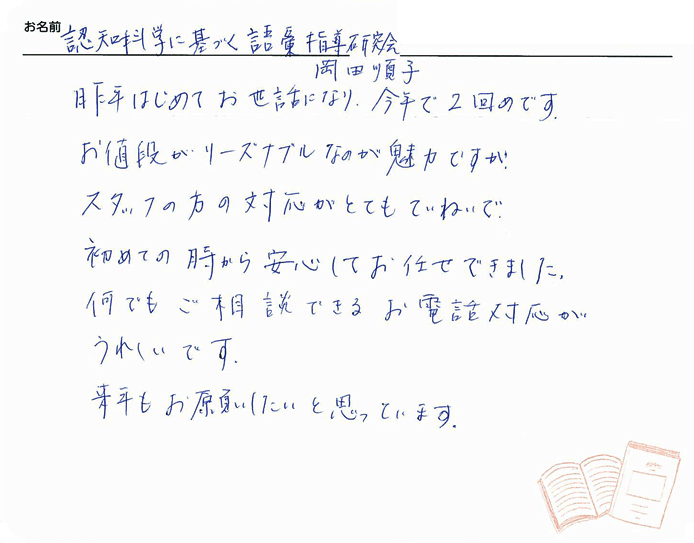 お名前 認知科学に基づく語彙指導研究会
岡田順子
昨年はじめてお世話になり、今年で2回めです。
お値段がリーズナブルなのが魅力ですが、
スタッフの方の対応がとてもていねいで、
初めての時から安心してお任せできました。
何でもご相談できるお電話対応が
うれしいです。
来年もお願いしたいと思っています。